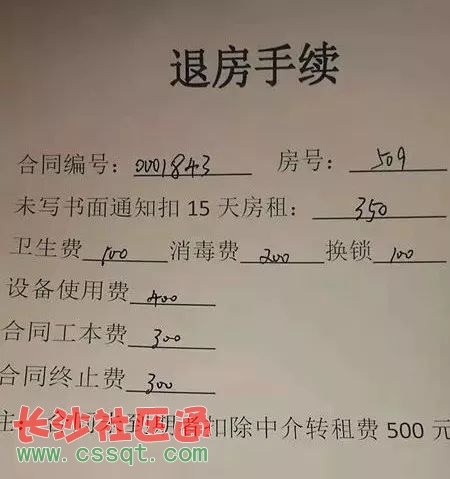 退房手续
合同编号：0001843 房号：509
未写书面通知扣 15 天房租：350
卫生费 100 消毒费 200 换锁 100
设备使用费 400
合同工本费 300
合同终止费 300
注：合同未到期者扣除中介转租费 500 元
长沙社区通
www.cssqt.com